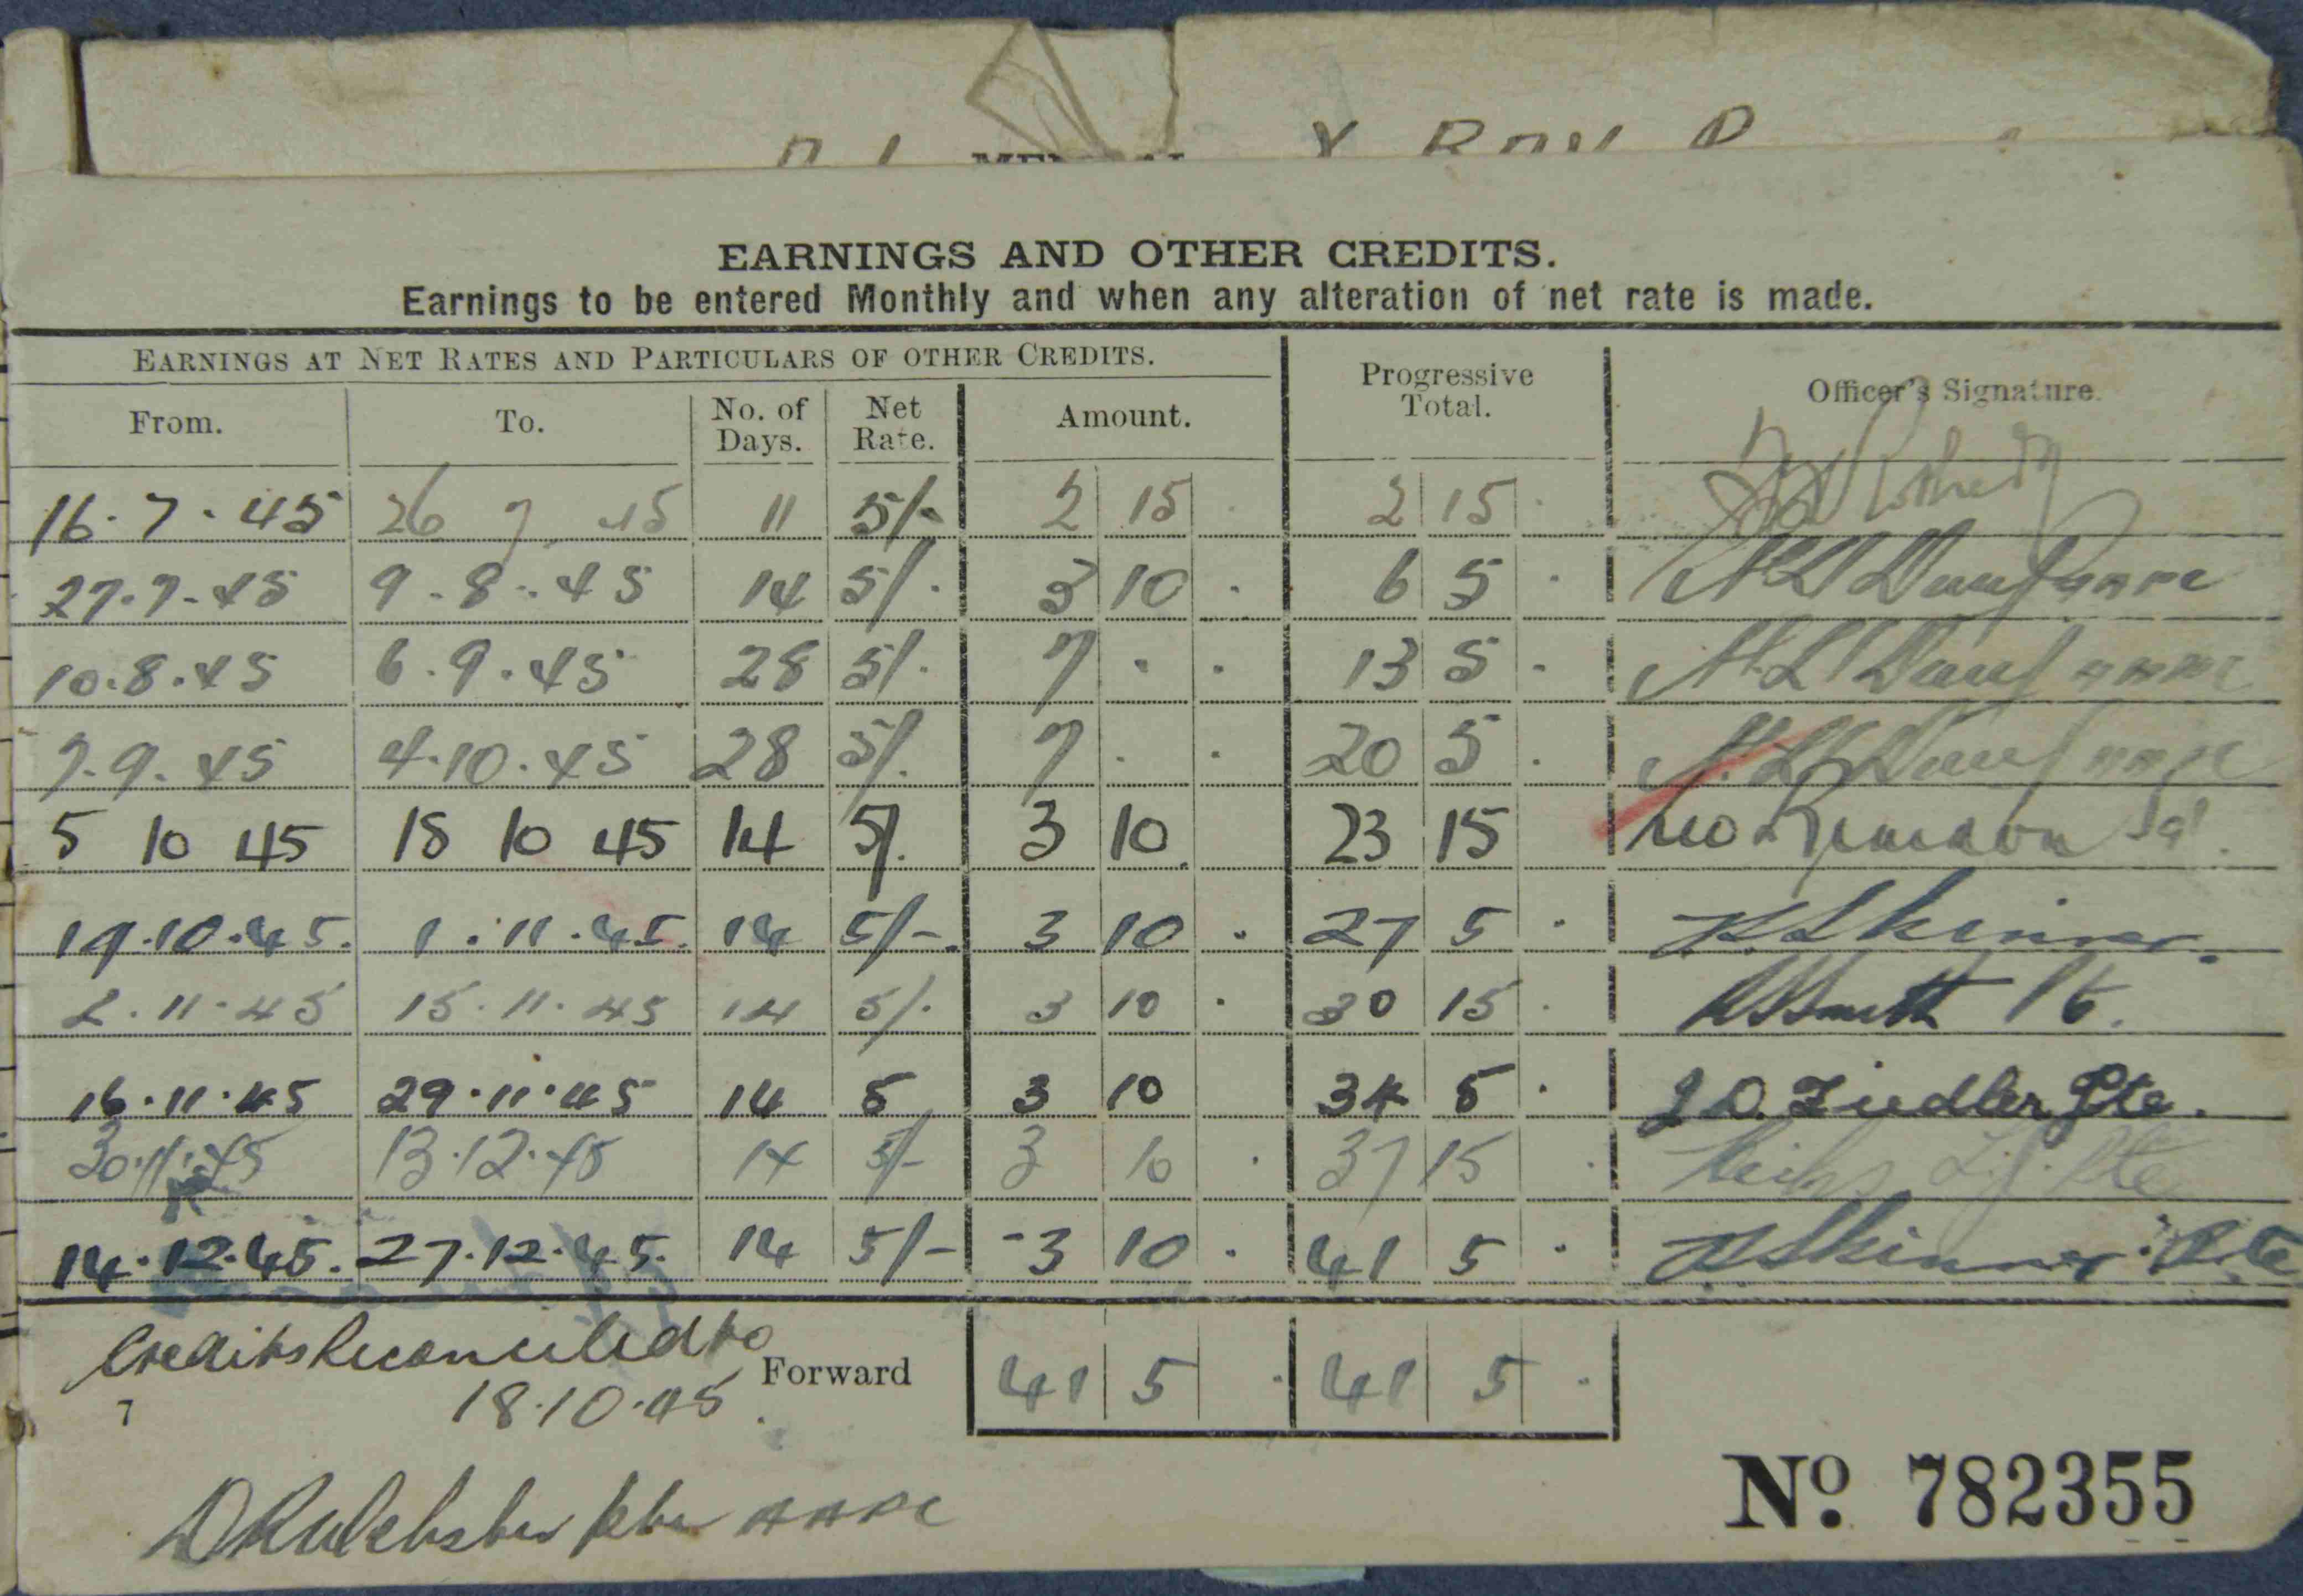 EARNINGS AND OTHER CREDITS.
Earnings to be entered Monthly and when any alteration of net rate is made.
EARNINGS AT NET RATES AND PARTICULARS OF OTHER CREDITS. Progressive Total. Officer's Signature.
From. To. No. of Days. Net Rate. Amount.
16.7.45 26 7 45 11 5/- 2 15 . 2 15 .
27.7.45 9.8.45 14 5/. 3 10 . 6 5 .
10.8.45 6.9.45 28 5/. 7 . . 13 5 .
7.9.45 4.10.45 28 5/. 7 . . 20 5 .
5 10 45 18 10 45 14 5/. 3 10. 23 15
19.10.45. 1.11.45. 14 5/-. 3 10 . 27 5 . Skinner.
2.11.45 15.11.45 14 5/. 3 10 . 30 15 . Smith
16.11.45 29.11.45 14 5 3 10 34 5 . Ziedler Pte.
30.11.45 13.12.45 14 5/- 3 10 . 37 15 . Pte
14.12.45. 27.12.45. 14 5/- -3 10 . 41 5 . Skinner. Pte
Credits Reconciled to
18.10.45.
Forward 41 5 . 41 5 .
7
DR Webster
No. 782355